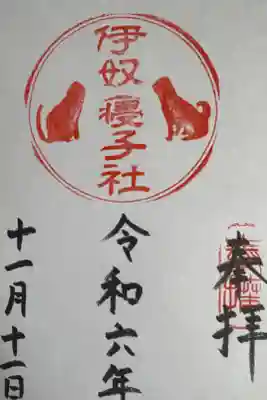 奉拝
伊奴寝子社
令和六年
十一月十一日